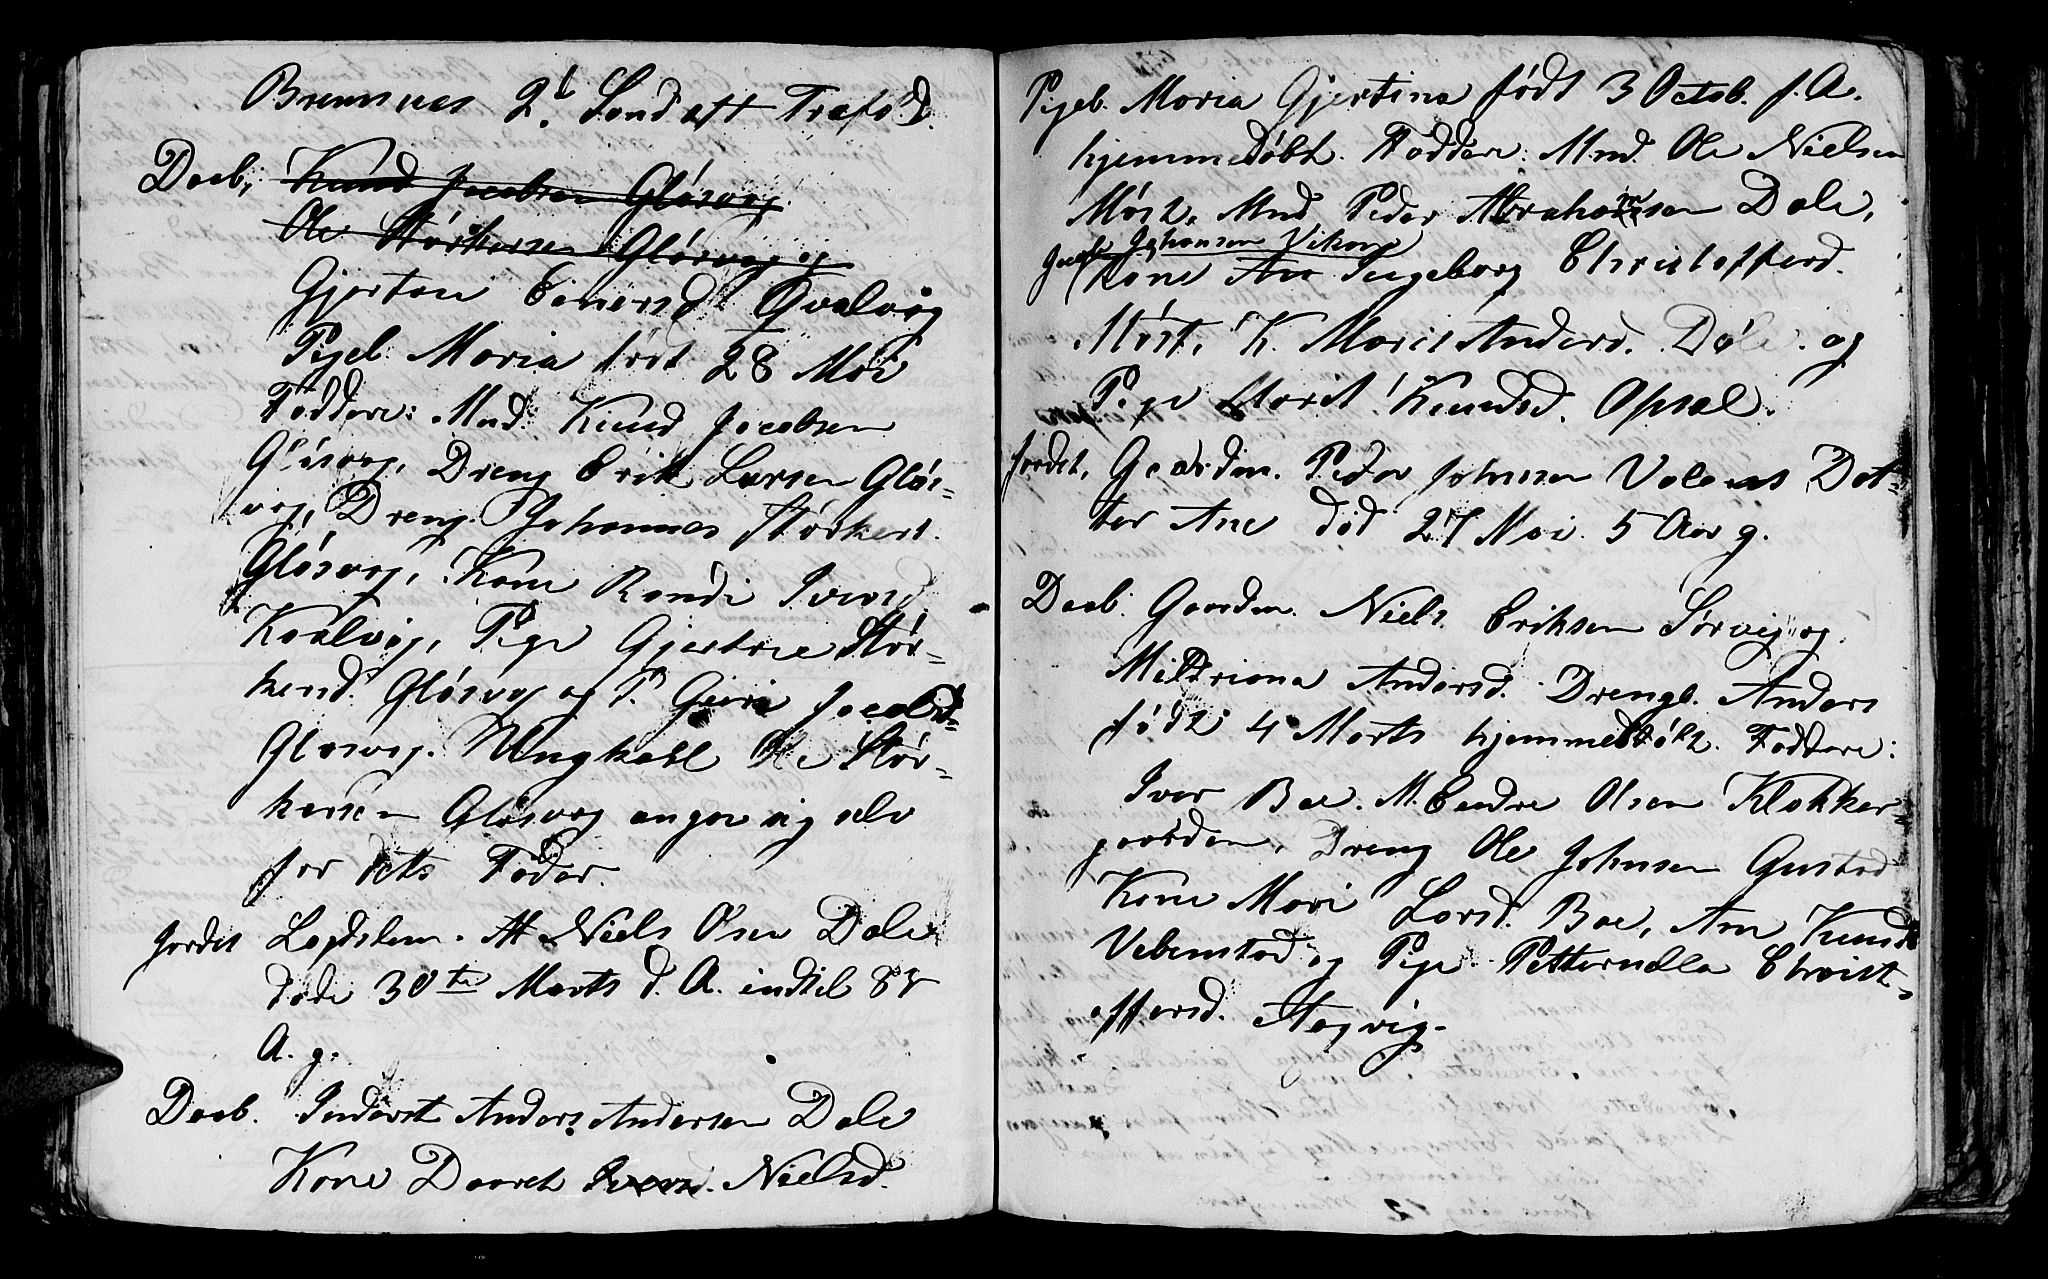 Bremsnæs 2d Sønd eft Tref:d.
Daab, Knud Jacobsen Gløsvog
Ole Størkersen Gløsvog og
Gjertru Einersd Qvalvog
Pigeb. Maria født 28 Mai
Faddere: Md. Knud Jacobsen
Gløsvog, Dreng Erik Larsen Gløs-
vog, Dreng Johannes Størkers.
Gløsvog, Kone Randi Iversd.
Kvalvog, Pige Gjertrue Stør-
kersd. Gløsvog og P. Guri Jacobsd-
Gløsvog. Ungkarl Ole Stør-
kersen Gløsvog angav sig selv
for dets Fader.
Jordet Lægdslem. Niels Olsen Dale
døde 30te Marts d. A. indtil 83
A. g.
Daab. Inderst Anders Andersen Dale
Kone Daaret Iversd. Nielsd.
Pigeb. Maria Gjertina født 3 Octob. f. A.
hjemmedøbt. Faddere: Mnd. Ole Nielsen
Møst, Mnd Peder Abrahamsen Dale,
Johansen Vikan
Kone An Ingeborg Christofferd.
Møst, K. Marit Andersd. Dale og
Pige Marit Knudsd. Opsal.
Jordet, Gaardm. Peder Johnsen Valens Dat-
ter Ane død 27 Mai 5 Aar g.
Daab. Gaardm. Niels Eriksen Sørvig og
Mildriana Andersd. Drengb. Anders
født 4 Marts hjemmedøbt. Faddere:
Iver Bae. M. Endre Olsen Klokker-
gaarden, Dreng Ole Johnsen Gustad
Kone Mari Larsd. Bae, An Knudsd
Vebenstad og Pige Petternella Christ-
offersd. Aagvig.